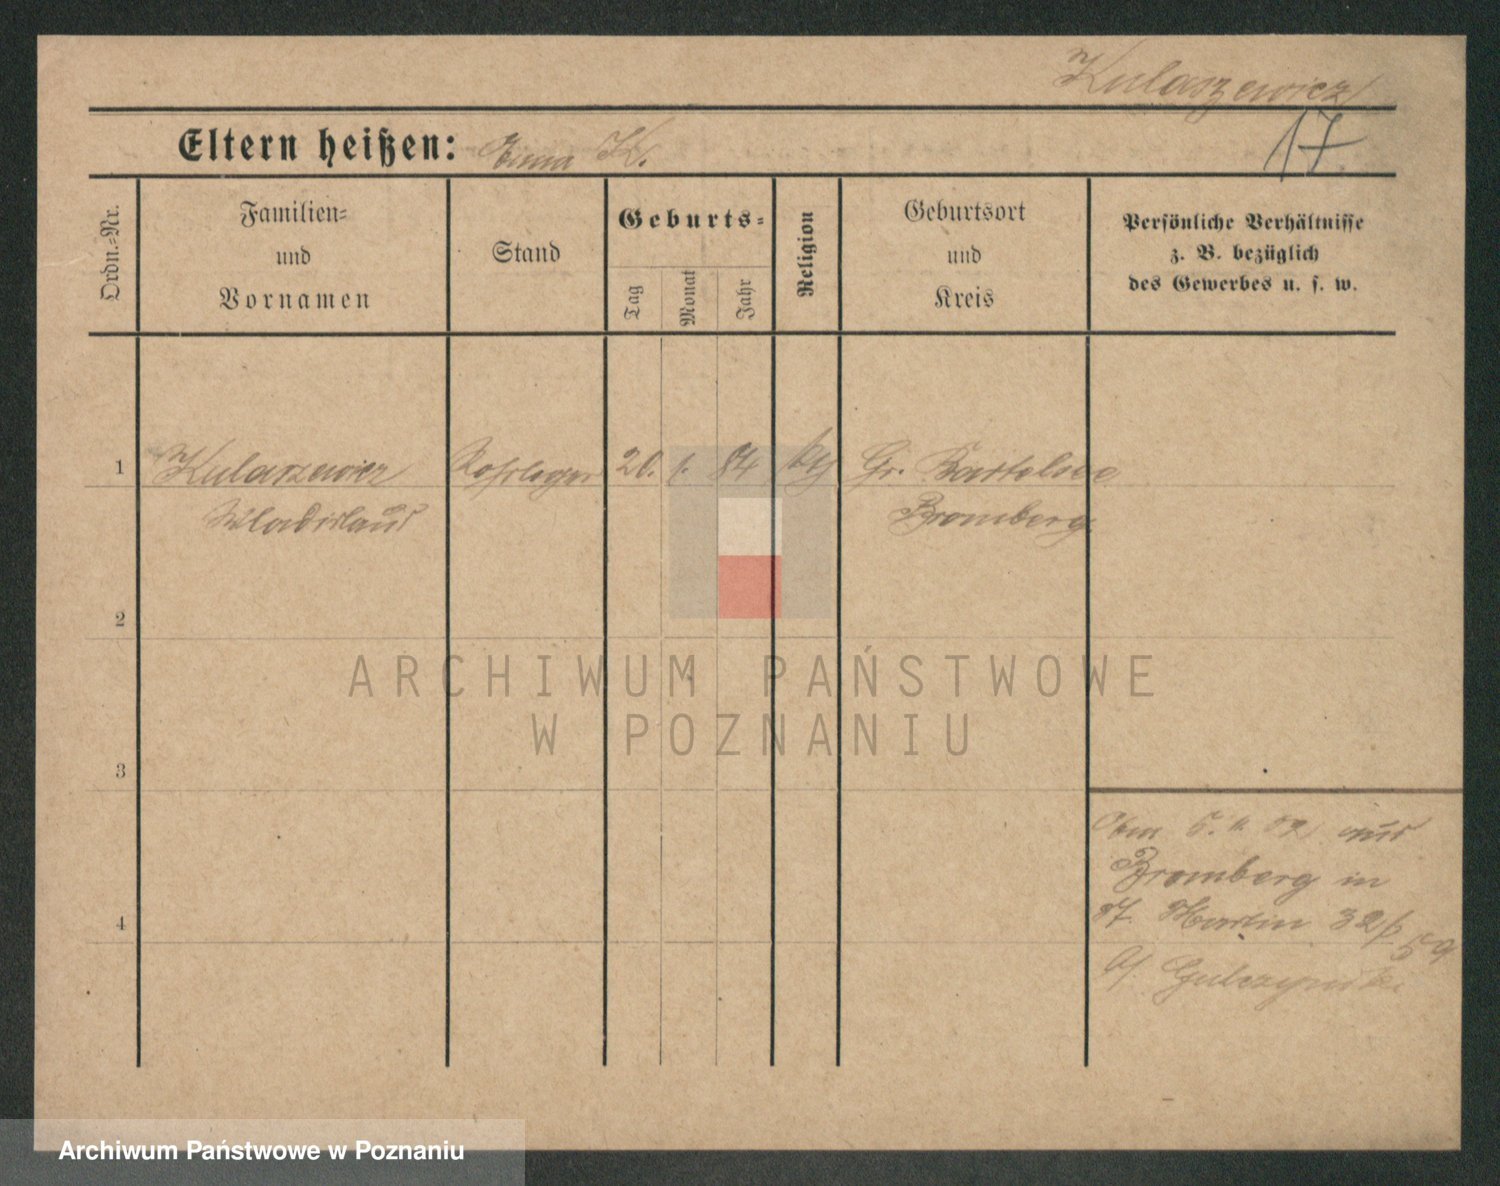 Kulaszewicz
17
Eltern heißen: Anna K.
Ordn.=Nr.
Familien=
und
Vornamen
Stand
Geburts=
Tag
Monat
Jahr
Religion
Geburtsort
und
Kreis
Persönliche Verhältnisse
z. B. bezüglich
des Gewerbes u. s. w.
1 Kulaszewicz Rohrleger 20. 1. 84 Gr. Bartelsee
Wladislaus Bromberg
2
3
4
aus
Bromberg in
Martin 32
b/ Gulczynski
ARCHIWUM PAŃSTWOWE
W POZNANIU
Archiwum Państwowe w Poznaniu